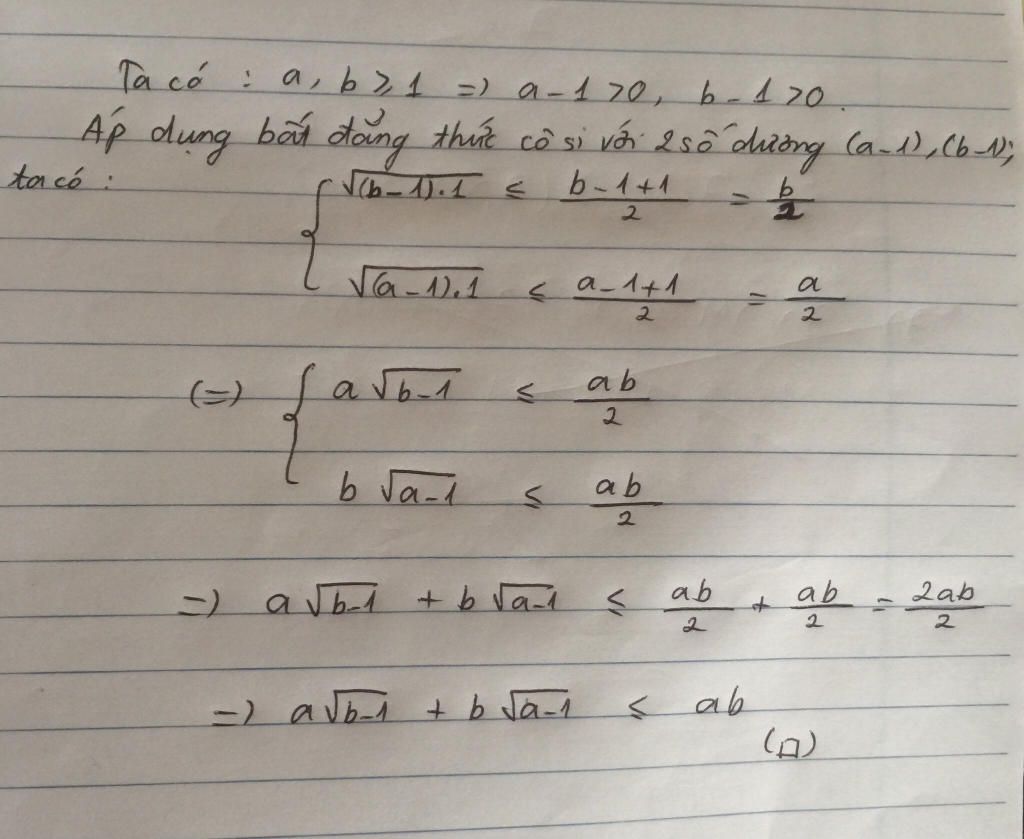 Ta có : a, b ≥ 1 => a - 1 > 0, b - 1 > 0.
Áp dụng bất đẳng thức cô si với 2 số dương (a-1), (b-1);
ta có :
{ √(b-1).1 ≤ (b-1+1)/2 = b/2
√(a-1).1 ≤ (a-1+1)/2 = a/2
(=) { a √(b-1) ≤ ab/2
b √(a-1) ≤ ab/2
=) a √(b-1) + b √(a-1) ≤ ab/2 + ab/2 = 2ab/2
=) a √(b-1) + b √(a-1) ≤ ab
(□)